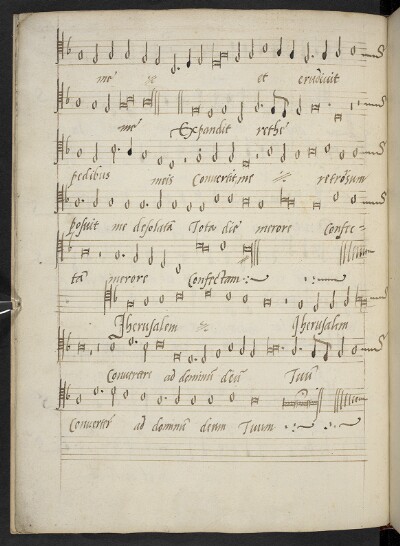 me et erudivit
me Expandit rethe
pedibus meis Convertit me retrorsum
posuit me desolatã Tota die merore Confec=
tã merore Confectam
Jherusalem Jherusalem
Convertere ad dominũ deũ Tuũ
Converter ad dominũ deum Tuum